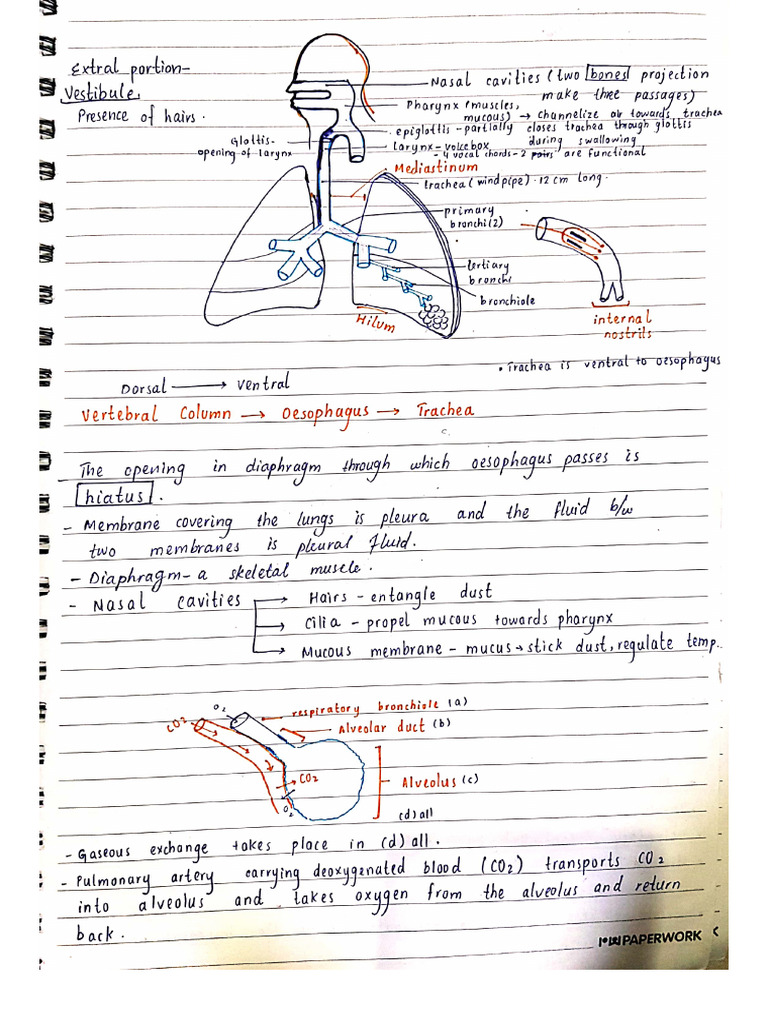 Extral portion-
Vestibule.
Presence of hairs.
Nasal cavities (two bones projection
make three passages)
Pharynx (muscles,
mucous) → channelize towards trachea
epiglottis - partially closes trachea through glottis
during swallowing
Glottis-
opening of larynx
larynx - voice box
- 4 vocal chords - 2 pairs are functional
Mediastinum
trachea (windpipe) · 12 cm long.
primary
bronchi(2)
tertiary
bronchi
bronchiole
Hilum
internal
nostrils
• Trachea is ventral to oesophagus
Dorsal → ventral
Vertebral Column → Oesophagus → Trachea
- The opening in diaphragm through which oesophagus passes is
hiatus.
- Membrane covering the lungs is pleura and the fluid b/w
two membranes is pleural fluid.
- Diaphragm - a skeletal muscle.
- Nasal cavities → Hairs - entangle dust
→ Cilia - propel mucous towards pharynx
→ Mucous membrane - mucus → stick dust, regulate temp..
CO2
O2
respiratory bronchiole (a)
Alveolar duct (b)
CO2
Alveolus (c)
O2
(d) all
- Gaseous exchange takes place in (d) all.
- Pulmonary artery carrying deoxygenated blood (CO2) transports CO2
into alveolus and takes oxygen from the alveolus and return
back.
PAPERWORK